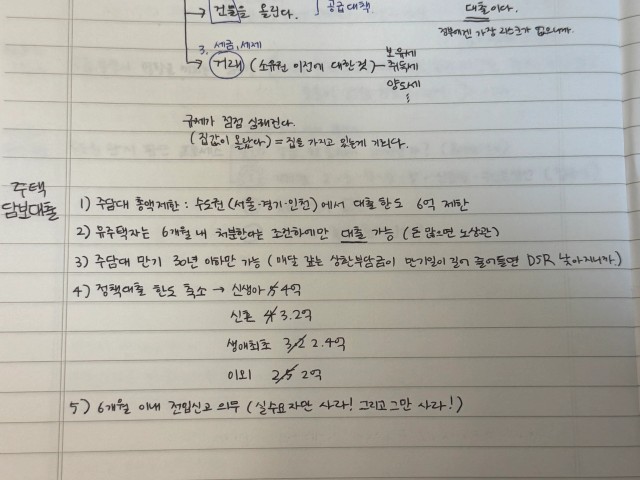 건물을 올린다. ] 공급대책
대출이다.
정부에겐 가장 리스크가 없으니까.
3. 세금, 세제
거래 (소유권 이전에 대한 것)
보유세
취득세
양도세
규제가 점점 심해진다.
(집값이 올랐다) = 집을 가지고 있는게 기회다.
주택
담보대출
1) 주담대 총액제한 : 수도권 (서울·경기·인천) 에서 대출한도 6억 제한
2) 유주택자는 6개월 내 처분한다는 조건하에만 대출 가능 (돈 많으면 노상관)
3) 주담대 만기 30년 이하만 가능 (매달 갚는 상환부담금이 만기일이 길어 줄어들면 DSR 낮아지니까)
4) 정책대출 한도 축소 → 신생아 5 4억
신혼 4 3.2억
생애최초 3.2 2.4억
이외 2.5 2억
5) 6개월 이내 전입신고 의무 (실수요자만 사라! 그리고 그만 사라!)